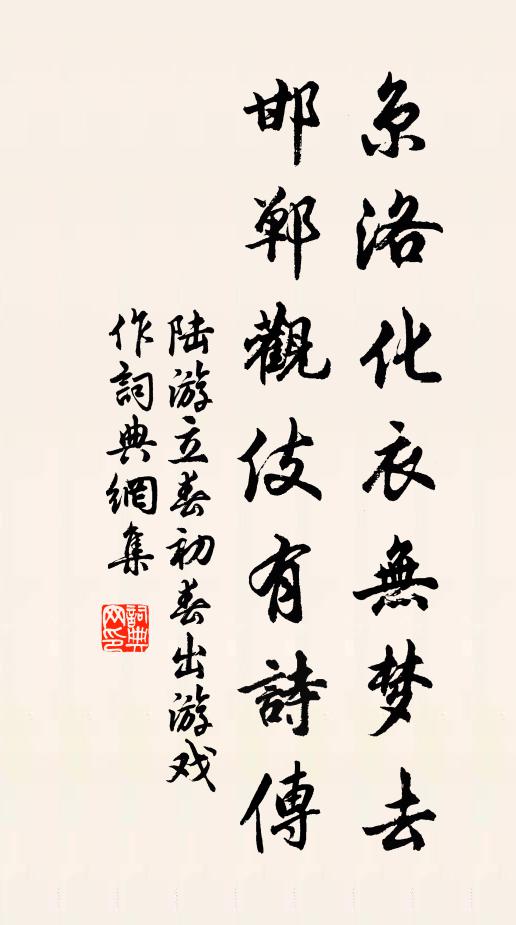 京洛化衣無梦去
邯鄲觀伎有詩傳
陆游立春初春出游戏
作詞典網集
詞典网印